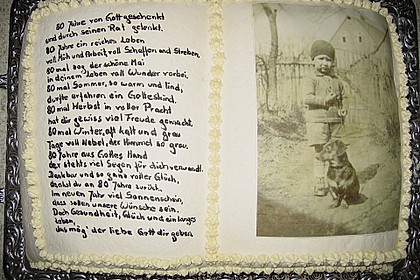 80 Jahre von Gott geschenkt
und durch seinen Rat gelenkt.
80 Jahre ein reiches Leben
voll Müh und Arbeit, voll Schaffen und Streben.
80 mal zog der schöne Mai
in deinem Leben voll Wunder vorbei.
80 mal Sommer, so warm und lind,
durfte erfahren ein Gotteskind.
80 mal Herbst in voller Pracht
hat dir gewiss viel Freude gemacht.
80 mal Winter, oft kalt und grau
Tage voll Nebel, der Himmel so grau.
80 Jahre aus Gottes Hand
der stehts viel Segen für dich verwandt.
Dankbar und so ganz voller Glück,
denkst du an 80 Jahre zurück.
Im neuen Jahr viel Sonnenschein,
dass sollen unsere Wünsche sein.
Doch Gesundheit, Glück und ein langes
Leben,
das mög' der liebe Gott dir geben